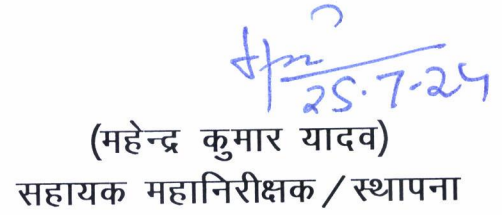 25.7-24
(महेन्द्र कुमार यादव)
सहायक महानिरीक्षक/स्थापना